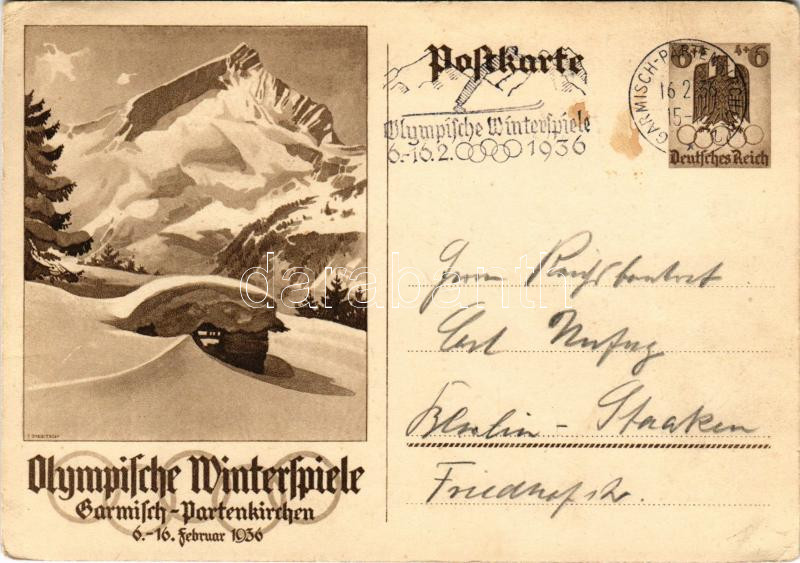 Postkarte
6+4 4+6
Deutsches Reich
GARMISCH-PARTENKIRCHEN
16.2.36
15-
Olympische Winterspiele
6.-16.2. 1936
darabanth
Herrn
Carl
Berlin - Staaken
Friedhofstr.
Olympische Winterspiele
Garmisch-Partenkirchen
6.-16. Februar 1936